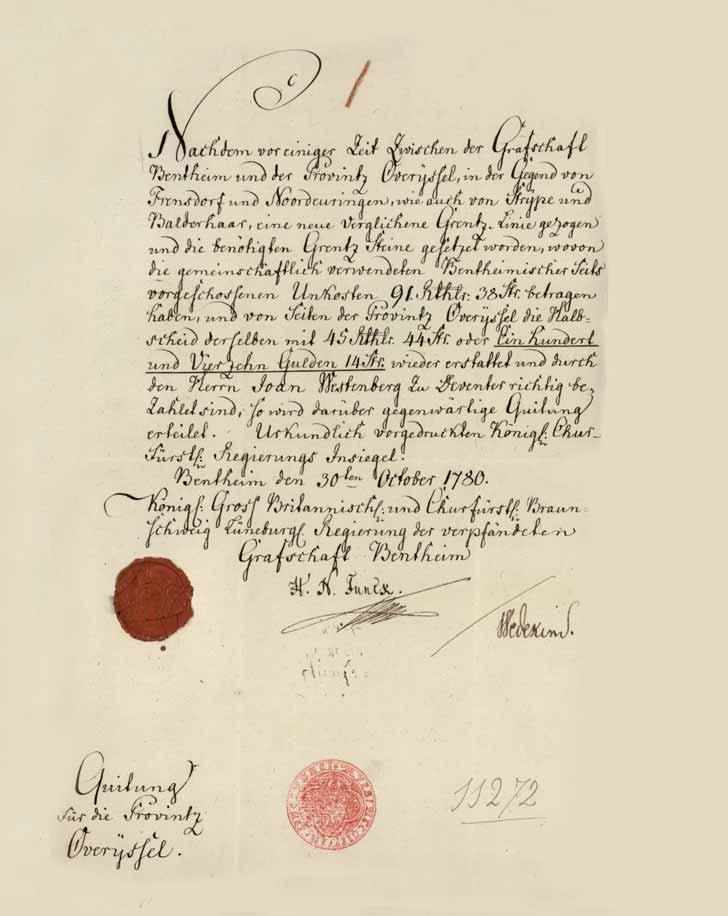 Nachdem vor einiger Zeit Zwischen der Grafschaft
Bentheim und der Provintz Overÿssel, in der Gegend von
Frensdorf und Noordeuringen, wie auch von Strype und
Balderhaar, eine neue verglichene Grentz-Linie gezogen
und die benötigten Grentz Steine gesetzet worden, wovon
die gemeinschaftlich verwendeten Bentheimischer Seits
vorgeschossenen Unkosten 91. Rthlr. 38 Str. betragen
haben, und von Seiten der Provintz Overÿssel die Halb-
scheid derselben mit 45 Rthlr. 44 Str. oder Ein hundert
und Vier zehn Gulden 14 Str. wieder erstattet und durch
den Herrn Joan Westenberg zu Deventer richtig be-
zahlet sind, so wird darüber gegenwärtige Quitung
erteilet. Urkundlich vorgedruckten Königl: Chur-
Fürstl: Regierungs Insiegel.
Bentheim den 30ten October 1780.
Königl: Gross Britannisch: und Churfürstl: Braun-
schweig Lüneburgl. Regierung der verpfändeten
Grafschaft Bentheim
H. N. Funck.
Wedekind.
Quitung
für die Provintz
Overÿssel.
11272